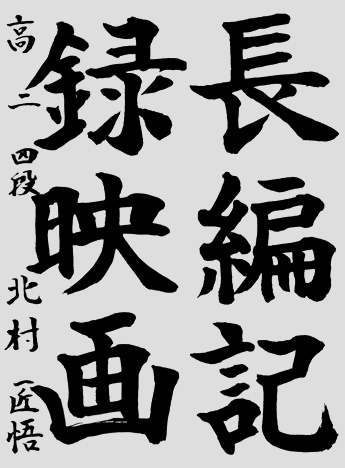 長編記
録映画
高二 四段 北村 匠悟